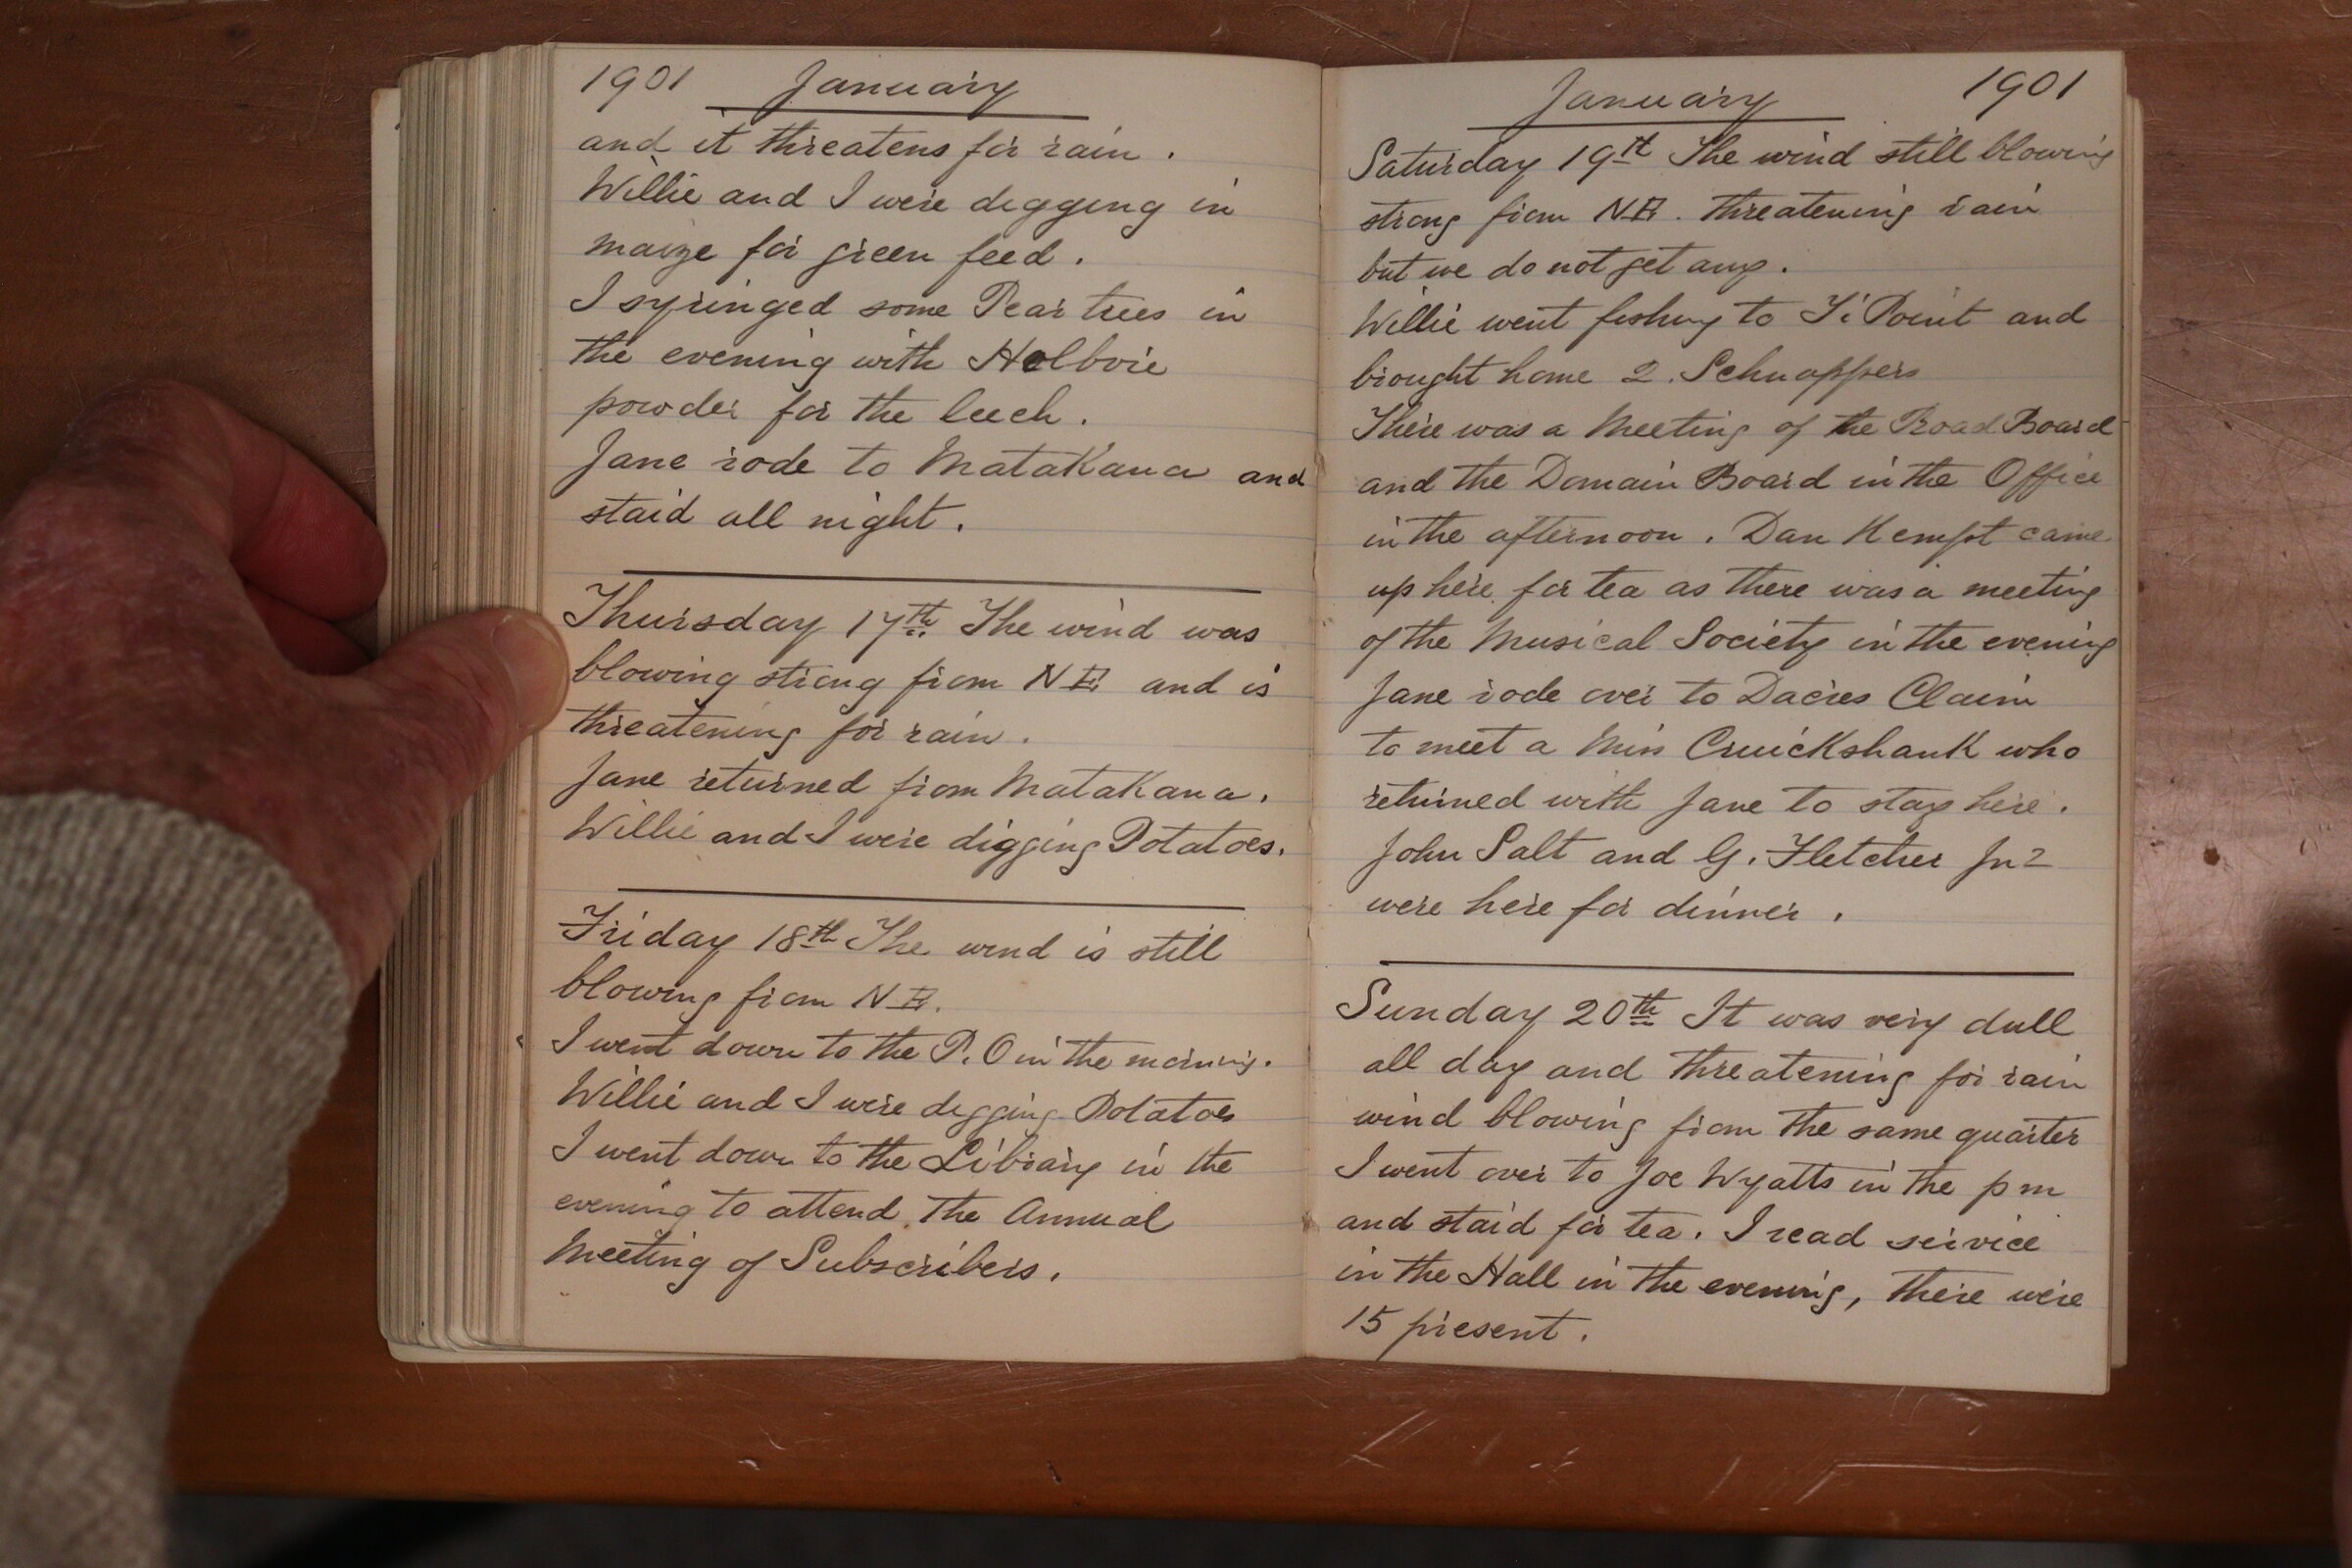 1901 January
and it threatens for rain.
Willie and I were digging in
maize for green feed.
I syringed some Pear trees in
the evening with Helbore
powder for the leech.
Jane rode to Matakana and
staid all night.
Thursday 17th The wind was
blowing strong from N E and is
threatening for rain.
Jane returned from Matakana.
Willie and I were digging Potatoes.
Friday 18th The wind is still
blowing from N E.
I went down to the P. O in the morning.
Willie and I were digging Potatoes
I went down to the Library in the
evening to attend the Annual
Meeting of Subscribers.
January 1901
Saturday 19th The wind still blowing
strong from N E. threatening rain
but we do not get any.
Willie went fishing to Ti Point and
brought home 2. Schnappers
There was a Meeting of the Road Board
and the Domain Board in the Office
in the afternoon. Dan Kempt came
up here for tea as there was a meeting
of the Musical Society in the evening
Jane rode over to Dacres Claim
to meet a Miss Cruickshank who
returned with Jane to stay here.
John Salt and G. Fletcher Jnr
were here for dinner.
Sunday 20th It was very dull
all day and threatening for rain
wind blowing from the same quarter
I went over to Joe Wyatts in the p m
and staid for tea. I read service
in the Hall in the evening, there were
15 present.